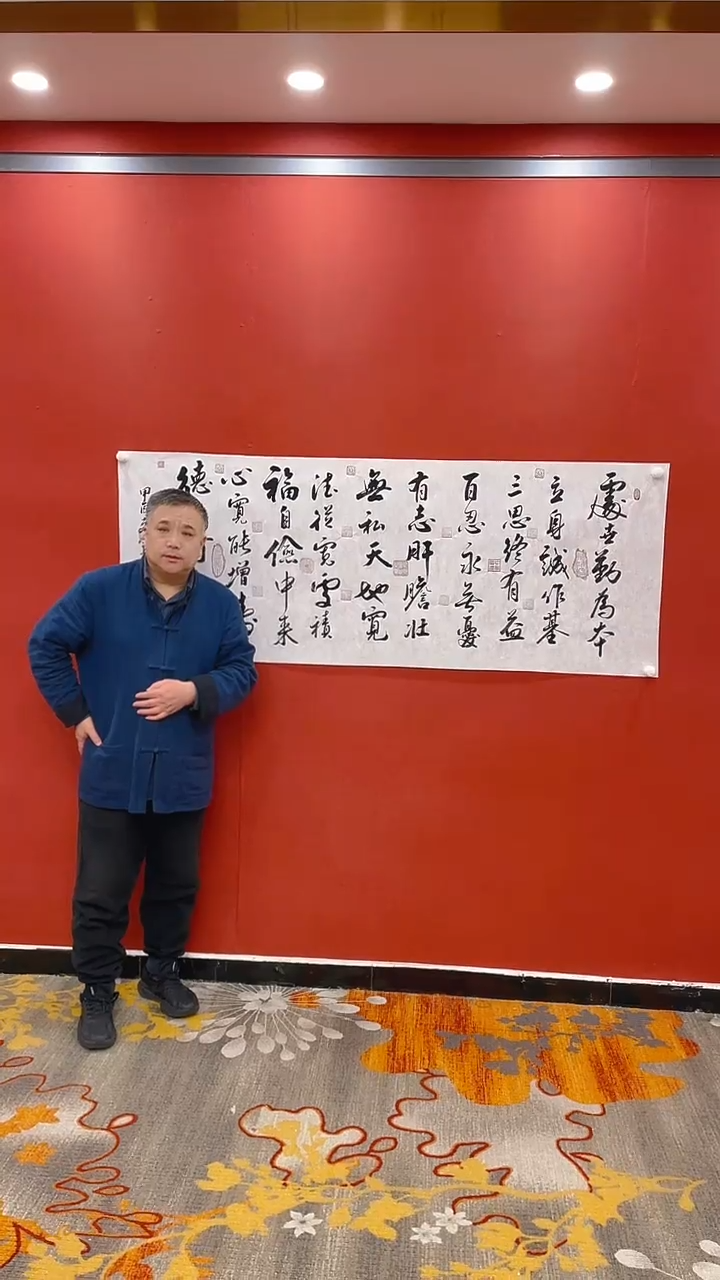 處世勤為本
立身誠作基
三思終有益
百忍永無憂
有志肝膽壯
無私天地寬
德從寬處積
福自儉中來
心寬能增壽
德